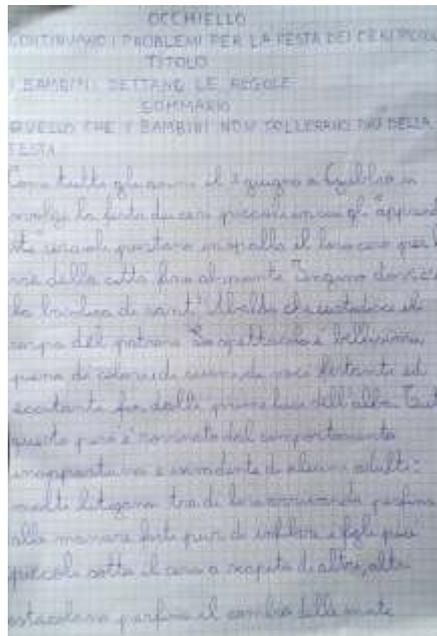 OCCHIELLO
CONTINUANO I PROBLEMI PER LA FESTA DEI CERI PICCOLI
TITOLO
I BAMBINI DETTANO LE REGOLE
SOMMARIO
QUELLO CHE I BAMBINI NON TOLLERANO PIÙ DELLA
FESTA
Come tutti gli anni il 2 giugno a Gubbio si
svolge la festa dei ceri piccoli in cui gli "apprendi
sti" ceraioli portano in spalla il loro cero per le
vie della città fino al monte Ingino dove c'è
la basilica di sant'Ubaldo che custodisce il
corpo del patrono. Lo spettacolo è bellissimo
pieno di colori, di suoni, di voci festante ed
eccitante fin dalle prime luci dell'alba. Tutto
questo però è rovinato dal comportamento
inopportuno e invadente di alcuni adulti:
molti litigano tra di loro arrivando perfino
alle mani pur di infilare i figli più
piccoli sotto il cero a scapito di altri, altri
ostacolano perfino il cambio delle mute